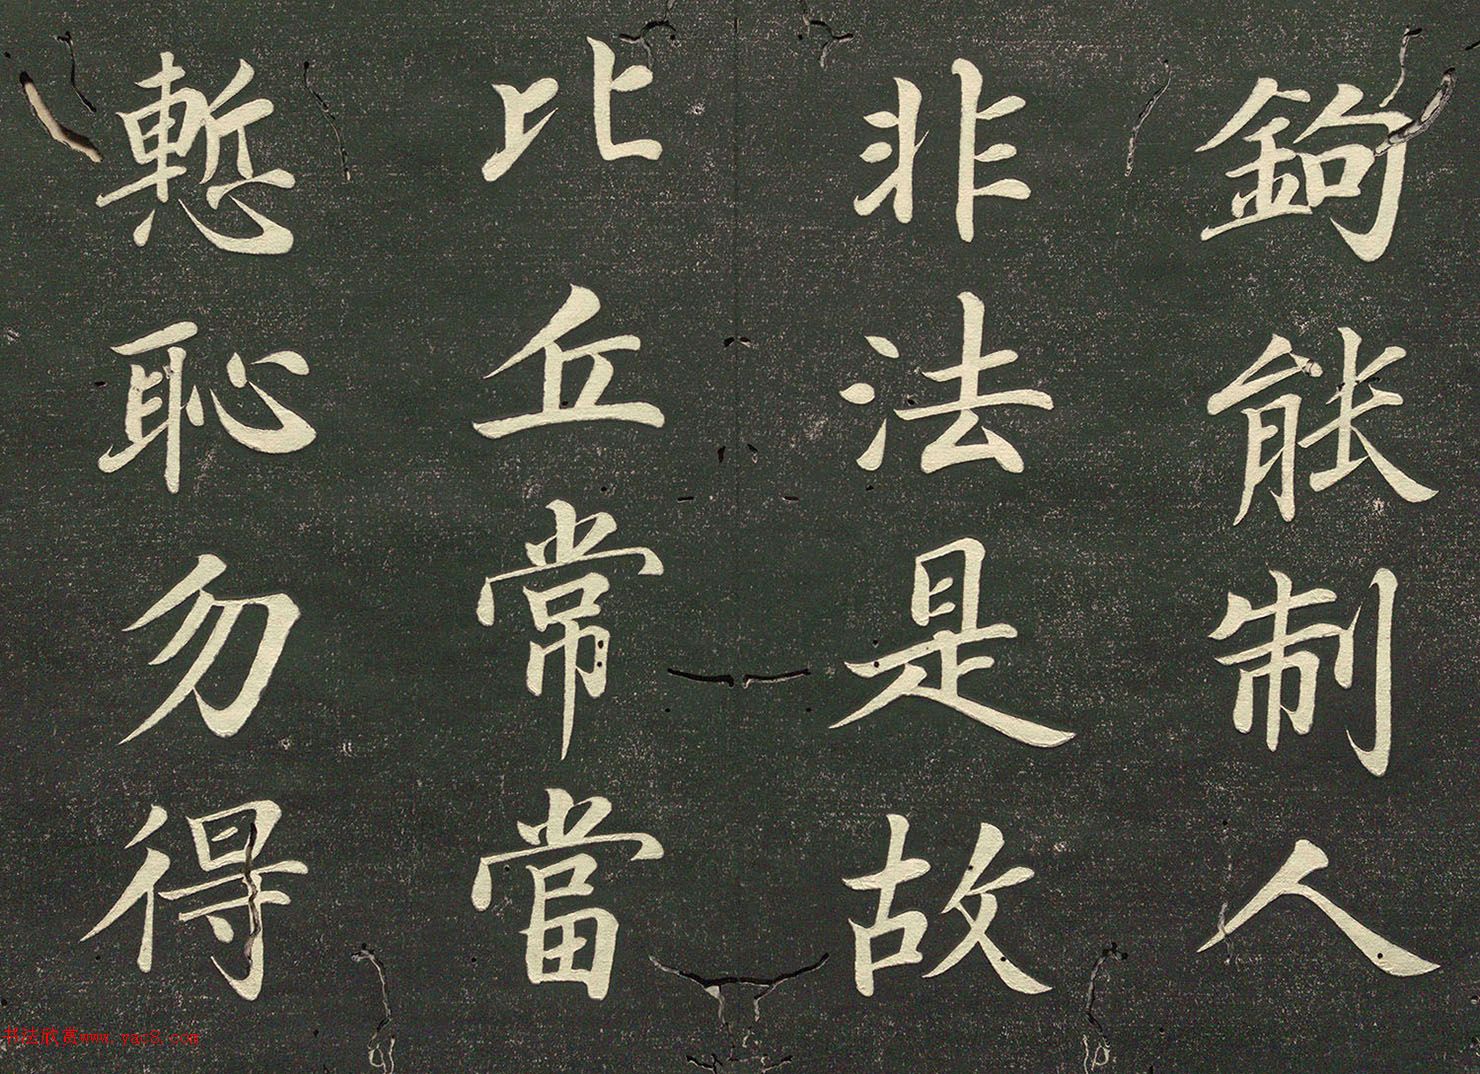 鉤能制人
非法是故
比丘常當
慙恥勿得
书法欣赏www.yac8.com